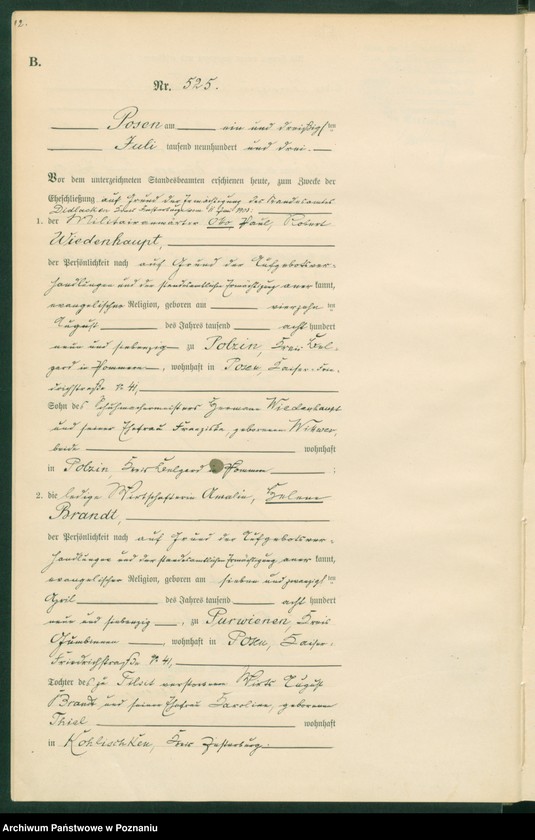 12.
B.
Nr. 525.
Posen am ein und dreißigsten
Juli tausend neunhundert und drei.
Vor dem unterzeichneten Standesbeamten erschienen heute, zum Zwecke der
Eheschließung auf Grund der Ermächtigung des Standesamtes
Didlacken Kreis Insterburg vom Juni 1903:
1. der Militairanwärter Otto Paul, Robert
Wiedenhaupt,
der Persönlichkeit nach auf Grund der Aufgebotsver-
handlungen und der standesamtlichen Ermächtigung aner kannt,
evangelischer Religion, geboren am vierzehn ten
August des Jahres tausend acht hundert
neun und siebenzig zu Polzin, Kreis Bel-
gard in Pommern, wohnhaft in Posen, Kaiser-Frie-
drichstraße No 41,
Sohn des Schuhmachermeisters Hermann Wiedenhaupt
und seiner Ehefrau Franziska, geborenen
beide wohnhaft
in Polzin, Kreis Belgard in Pommern ;
2. die ledige Wirthschafterin Amalie, Helene
Brandt,
der Persönlichkeit nach auf Grund der Aufgebotsver-
handlungen und der standesamtlichen Ermächtigung aner kannt,
evangelischer Religion, geboren am sieben und zwanzigsten
April des Jahres tausend acht hundert
neun und siebenzig, zu Purwienen, Kreis
Gumbinnen wohnhaft in Posen, Kaiser-
Friedrichstraße No 41,
Tochter des zu Tilsit verstorbenen Wirts August
Brandt und seiner Ehefrau Karoline, geborenen
Thiel wohnhaft
in Kohlischken, Kreis Insterburg.
Archiwum Państwowe w Poznaniu